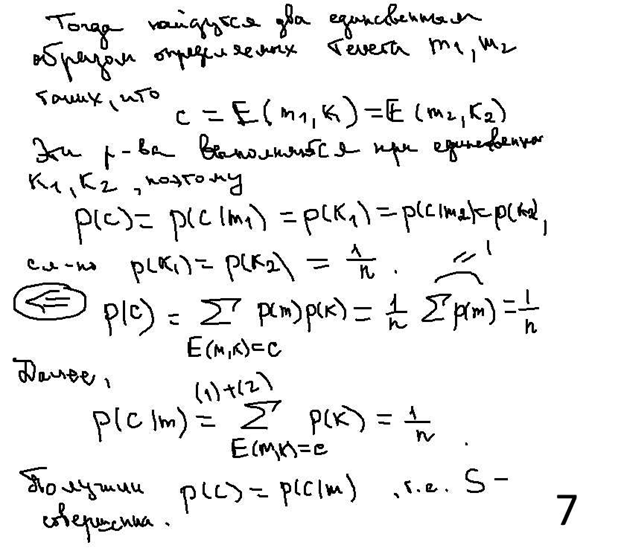 Тогда найдутся два единственным
образом определяемых текста m₁, m₂
таких, что
c = E(m₁, K₁) = E(m₂, K₂)
Эти р-ва выполняются при единственных
K₁, K₂, поэтому
p(c) = p(c|m₁) = p(K₁) = p(c|m₂) = p(K₂),
сл-но p(K₁) = p(K₂) = 1/n . = 1
⇐ p(c) = Σ p(m)p(K) = 1/n Σ p(m) = 1/n
E(m,K)=c
Далее,
(1)+(2)
p(c|m) = Σ p(K) = 1/n .
E(m,K)=c
Получили p(c) = p(c|m) , т.е. S –
совершенна.
7